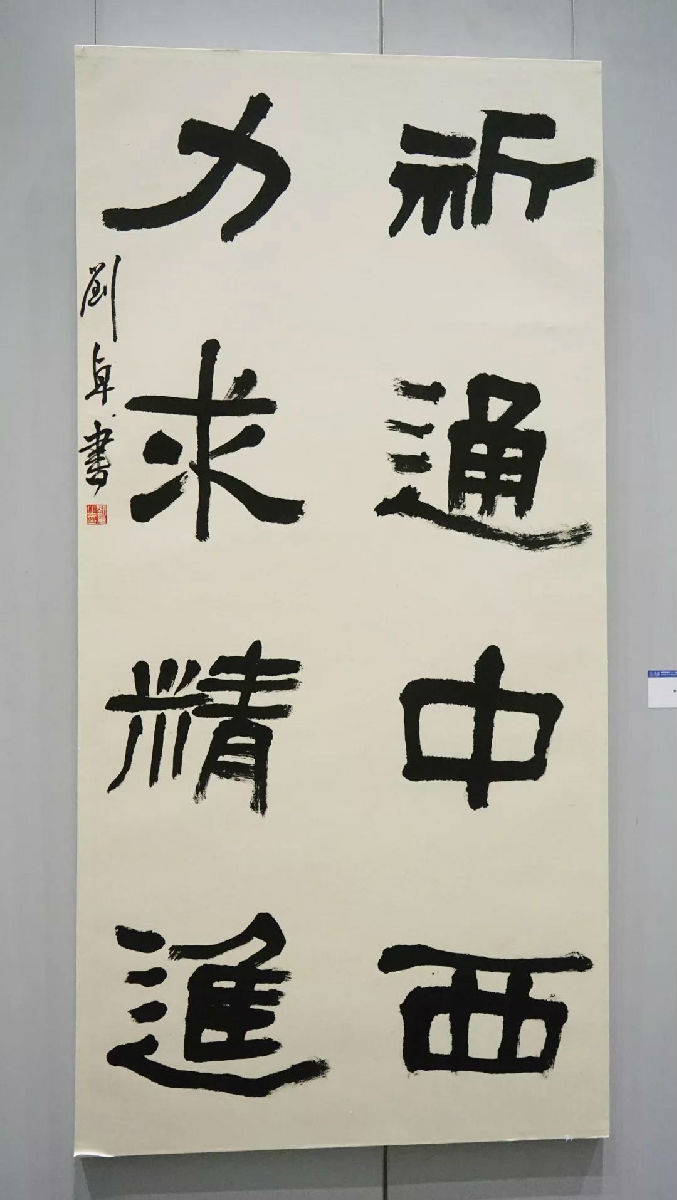 祈通中西
力求精進
劉卓書